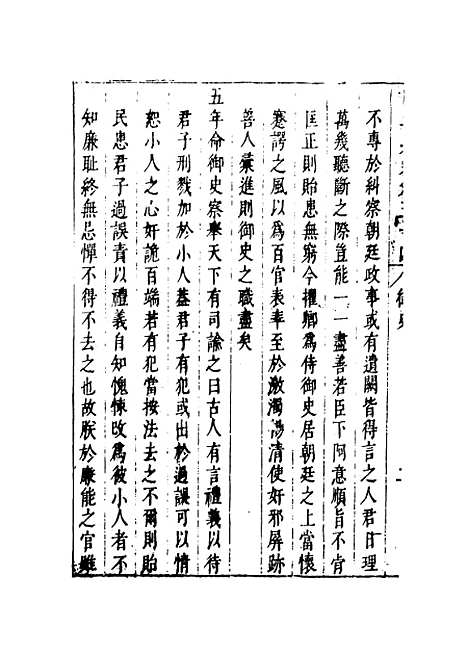 不專於糾察朝廷政事或有遺闕皆得言之人君日理
萬幾聽斷之際豈能一一盡善若臣下阿意順旨不肯
匡正則貽患無窮今擢卿爲侍御史居朝廷之上當懷
蹇諤之風以爲百官表率至於激濁揚清使奸邪屏跡
善人彙進則御史之職盡矣
五年命御史察舉天下有司諭之曰古人有言禮義以待
君子刑戮加於小人蓋君子有犯或出於過誤可以情
恕小人之心奸詭百端若有犯當按法去之不爾則貽
民患君子過誤責以禮義自知愧悚改爲彼小人者不
知廉耻終無忌憚不得不去之也故朕於廉能之官雖